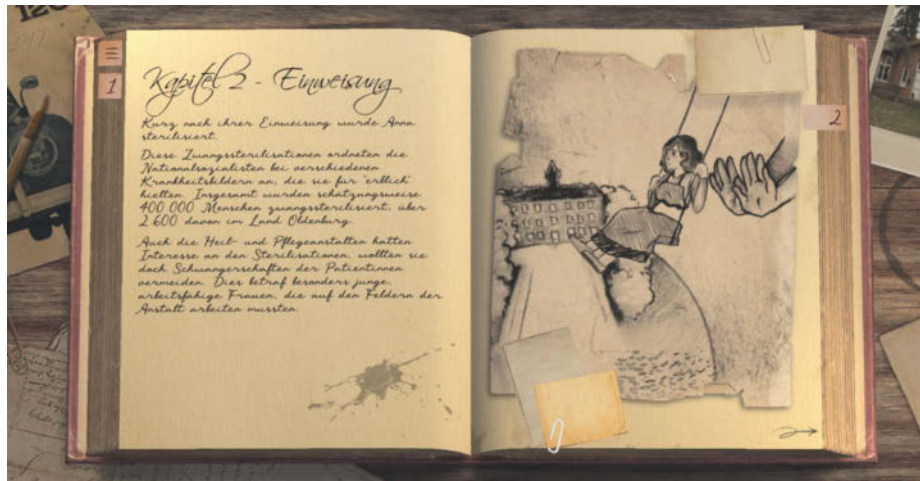 120
1
Kapitel 2 - Einweisung
Kurz nach ihrer Einweisung wurde Anna
sterilisiert.
Diese Zwangssterilisationen ordneten die
Nationalsozialisten bei verschiedenen
Krankheitsbildern an, die sie für "erblich"
hielten. Insgesamt wurden schätzungsweise
400.000 Menschen zwangssterilisiert, über
2.600 davon im Land Oldenburg.
Auch die Heil- und Pflegeanstalten hatten
Interesse an den Sterilisationen, wollten sie
doch Schwangerschaften der Patientinnen
vermeiden. Dies betraf besonders junge,
arbeitsfähige Frauen, die auf den Feldern der
Anstalt arbeiten mussten.
2